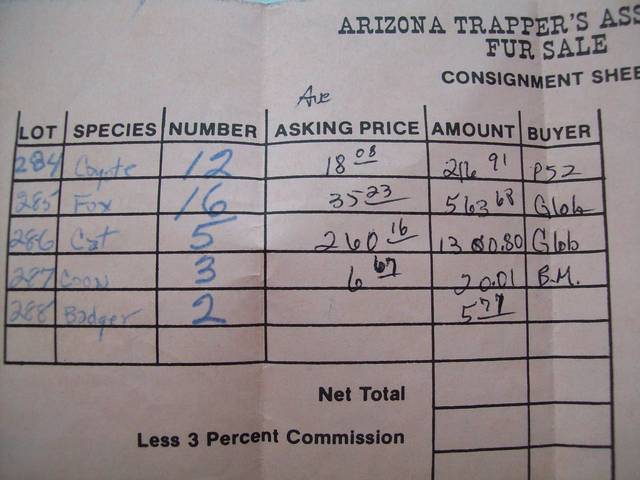 ARIZONA TRAPPER'S ASS
FUR SALE
CONSIGNMENT SHEE
Ave
LOT SPECIES NUMBER ASKING PRICE AMOUNT BUYER
284 Coyote 12 18 08 216 91 P52
285 Fox 16 35 23 563 68 Glob
286 Cat 5 260 16 1300.80 Glob
287 Coon 3 6 67 20.01 B.M.
288 Badger 2 5 77
Net Total
Less 3 Percent Commission